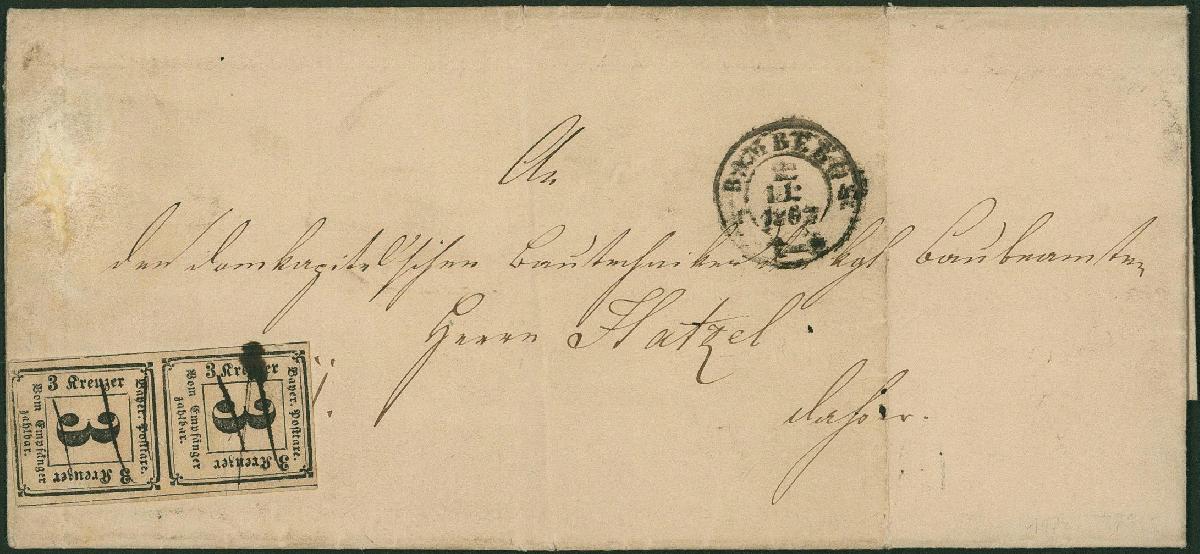 An
BAMBERG
II
186
den domkapitel'schen Bautechniker kgl Baubeamten
Herrn Hatzel
dahier.
3 Kreuzer
Bayer. Posttaxe.
3 Kreuzer
Vom Empfänger zahlbar.
3
3 Kreuzer
Bayer. Posttaxe.
3 Kreuzer
Vom Empfänger zahlbar.
3